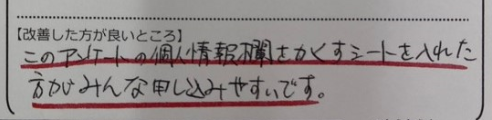 【改善した方が良いところ】
このアンケートの個人情報欄をかくすシートを入れた
方がみんな申し込みやすいです。